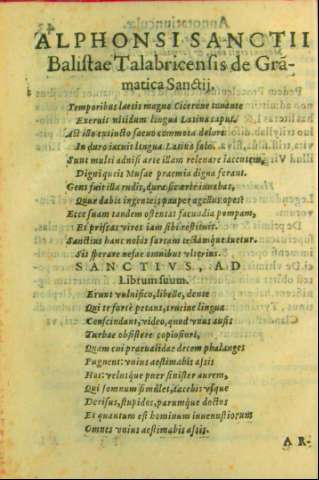 ALPHONSI SANCTII
Balistae Talabricensis de Grã-
matica Sanctij.
Temporibus laetis magno Cicerone tonante
Exeruit nitidum lingua Latina caput.
Ast illo extincto saeuo commota dolore
In duro iacuit lingua Latina solo.
Sunt multi adnisi arte illam releuare iacentem,
Digni queis Musae praemia digna ferant.
Gens fuit illa rudis, durae sic arte iuuabat,
Quae dabit ingenteis pauper agellus opes?
Ecce suam tandem ostentat facundia pompam,
Et priscas vires iam sibi restituit.
Sanctius hanc nobis sartam tectámque tuetur.
Sis sperare nefas omnibus vlterius.
SANCTIVS, AD
Librum suum.
Erunt vulnifico, libelle, dente
Qui te fortè petant, trucíne lingua
Conscindant, video, quod vnus ausis
Turbae obsistere copiosiori,
Quam cui praeualidae decem phalanges
Pugnent: vnius aestimabis assis
Hos: velutque puer sinister aurem,
Qui somnum simulet, iacebis vsque
Derisus, stupidos, parumque doctos
Et quantum est hominum inuenustiorum
Omnes vnius aestimabis assis.
AR-